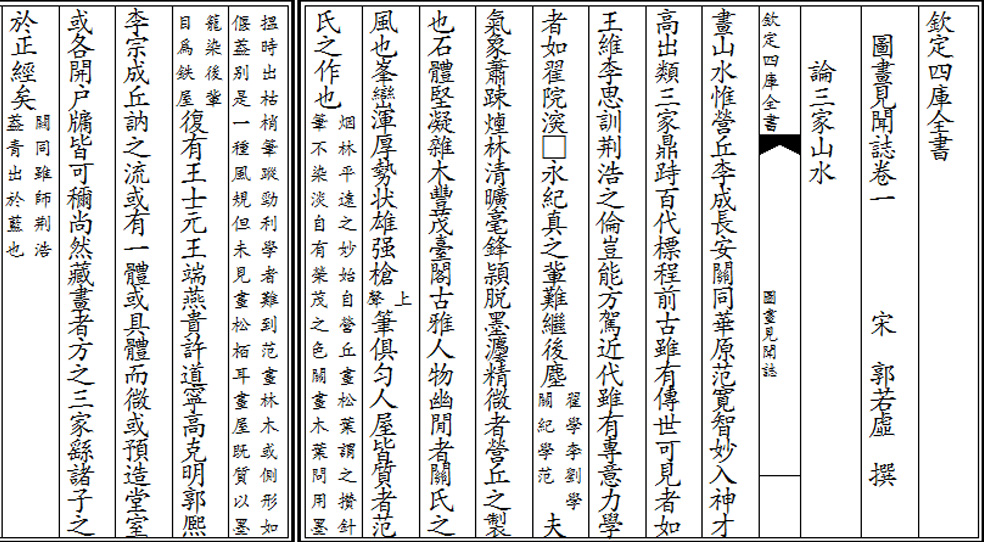 欽定四庫全書
圖畫見聞誌卷一 宋 郭若虛 撰
論三家山水
欽定四庫全書 圖畫見聞誌
畫山水惟營丘李成長安關同華原范寬智妙入神才
高出類三家鼎跱百代標程前古雖有傳世可見者如
王維李思訓荆浩之倫豈能方駕近代雖有專意力學
者如翟院湥□永紀真之輩難繼後塵
翟學李劉學
關紀學范
夫
氣象蕭踈煙林清曠毫鋒頴脫墨灋精微者營丘之製
也石體堅凝雜木豐茂臺閣古雅人物幽閒者關氏之
風也峯巒渾厚勢狀雄强槍
上
聲
筆俱匀人屋皆質者范
氏之作也
烟林平遠之妙始自營丘畫松葉謂之攢針
筆不染淡自有榮茂之色關畫木葉問用墨
搵時出枯梢筆蹤勁利學者難到范畫林木或側形如
偃葢别是一種風規但未見畫松栢耳畫屋既質以墨
籠染後輩
目爲鉄屋
復有王士元王端燕貴許道寧高克明郭熙
李宗成丘訥之流或有一體或具體而微或預造堂室
或各開户牖皆可稱尚然藏畫者方之三家繇諸子之
於正經矣
關同雖師荆浩
葢青出於藍也